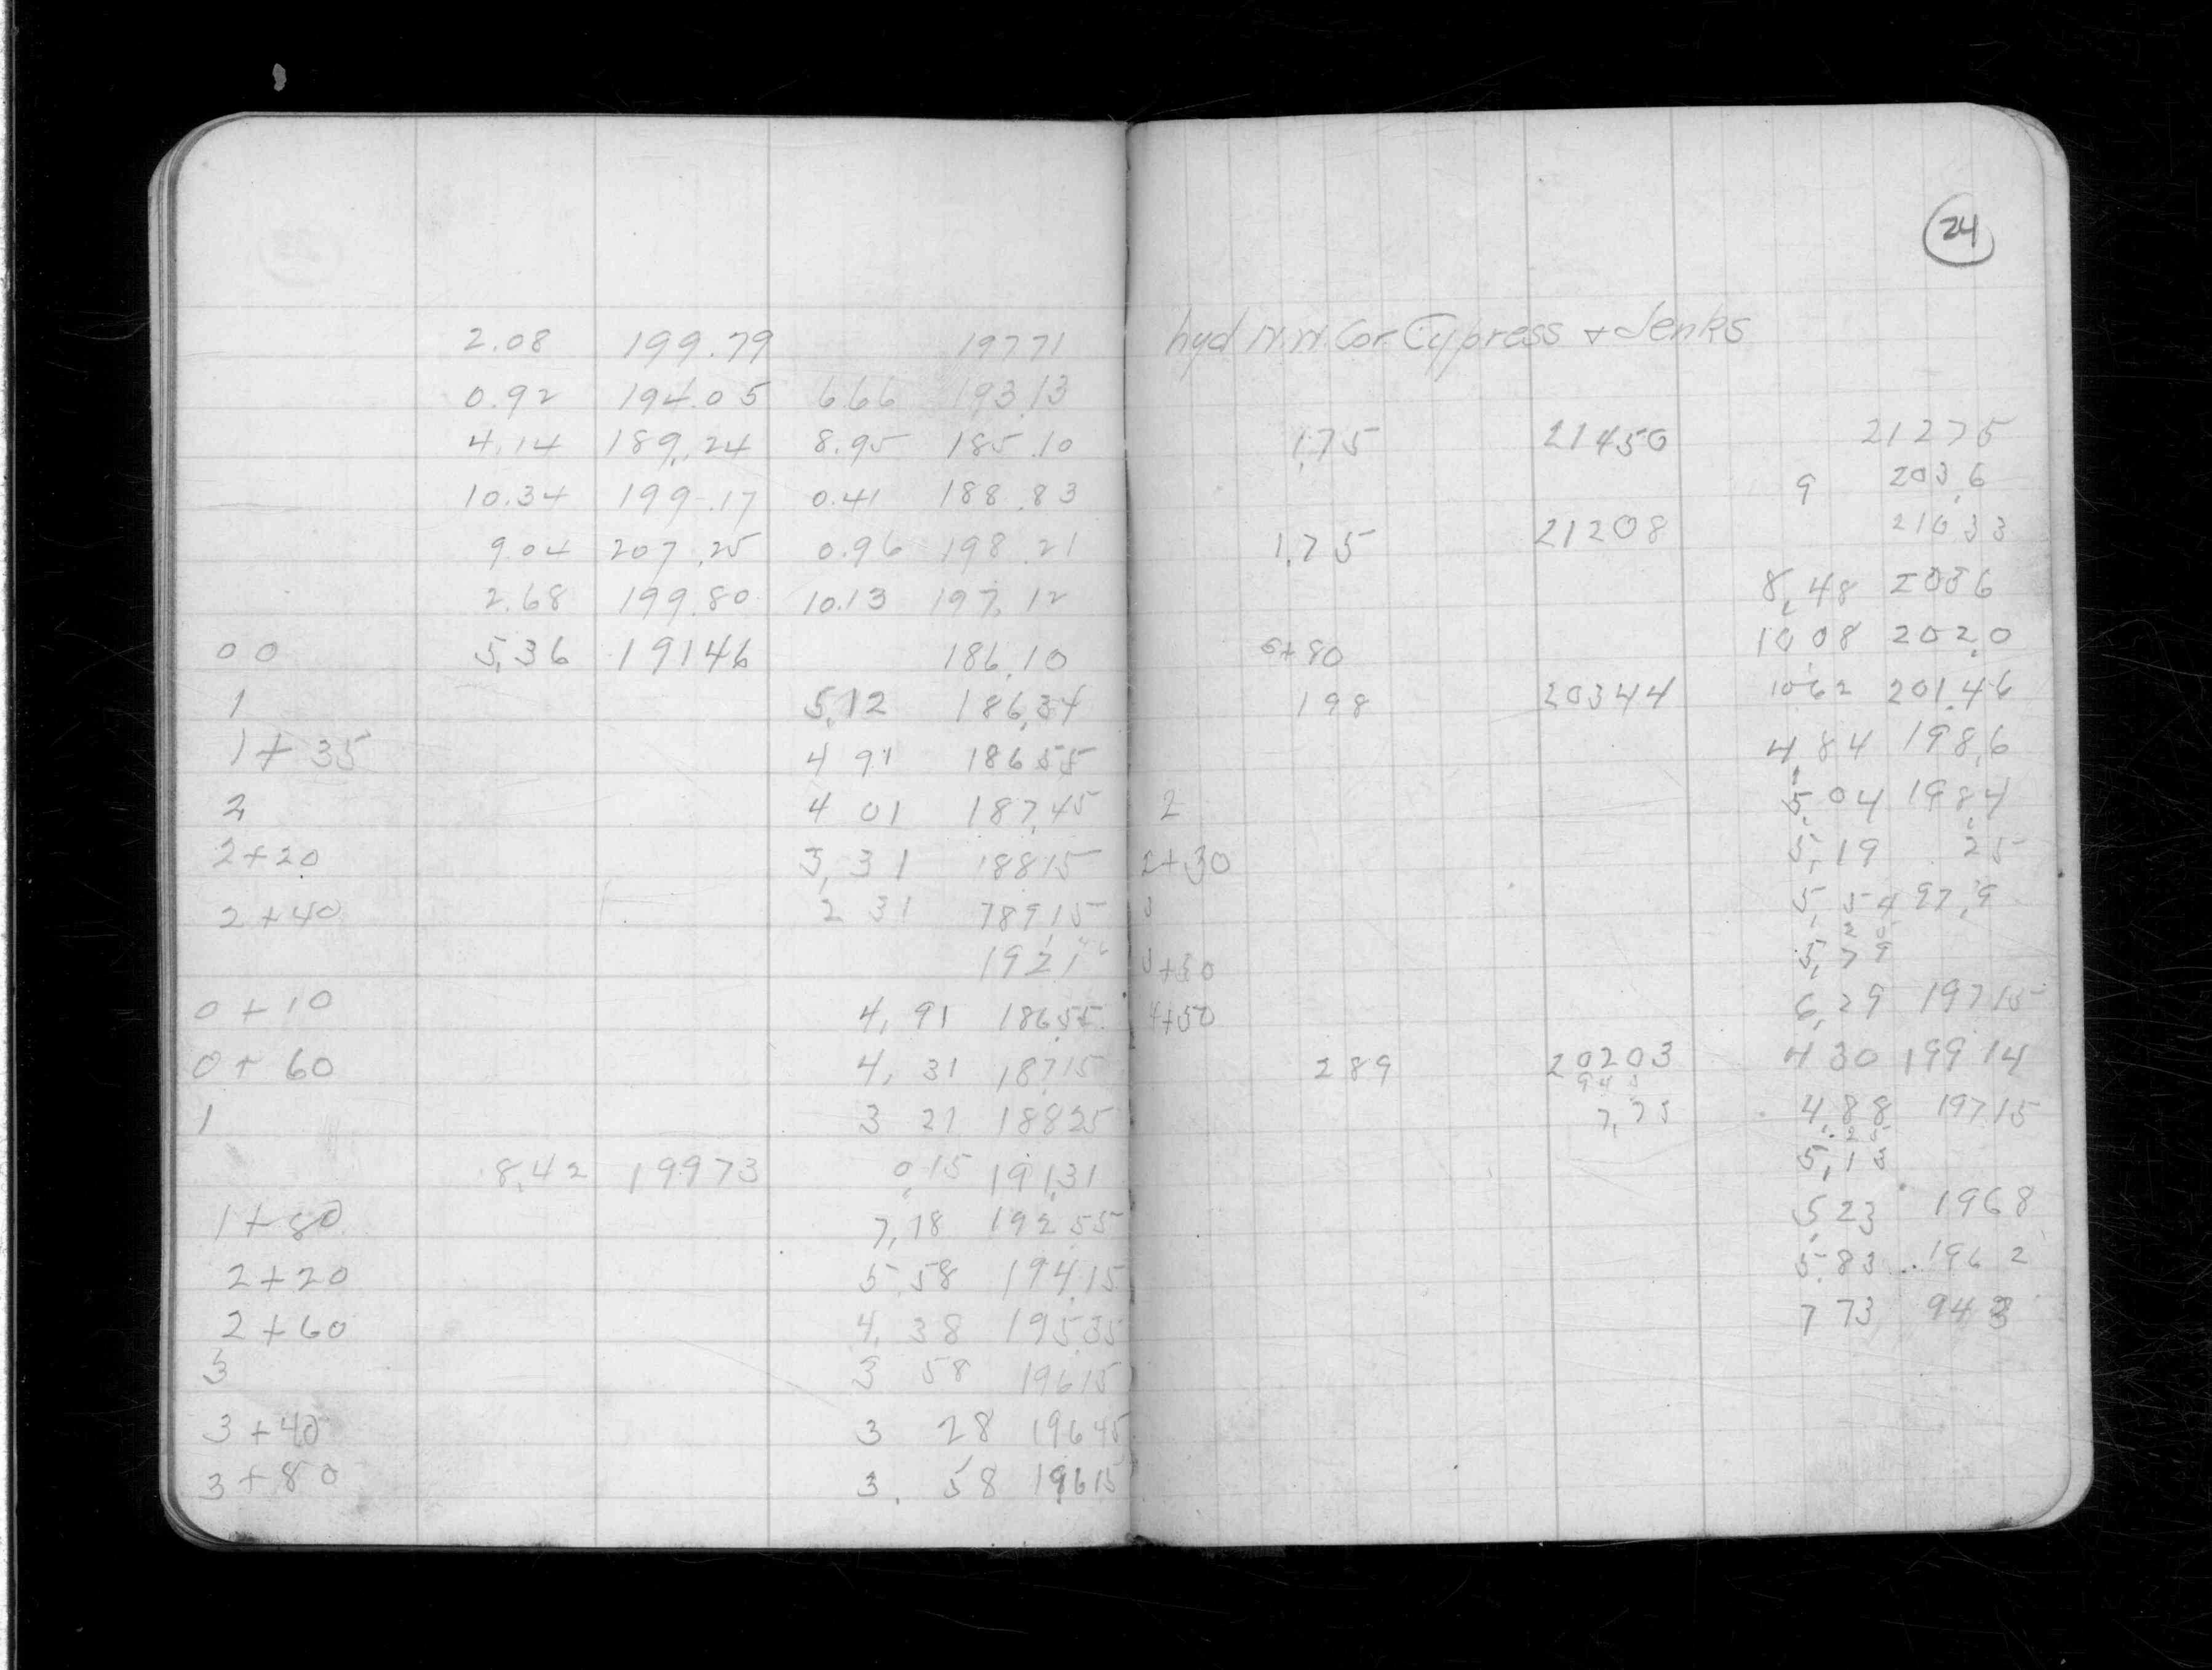 2.08 199.79 197.71
0.92 194.05 6.66 193.13
4.14 189.24 8.95 185.10
10.34 199.17 0.41 188.83
9.04 207.25 0.96 198.21
2.68 199.80 10.13 197.12
00 5.36 19146 186.10
1 5,12 186,34
1+35 4 91 18655
2 4 01 187,45
2+20 3,31 18815
2+40 2 31 18915
1921
0+10 4,91 18655
0+60 4,31 18715
1 3 21 18825
8,42 19973 0,15 191,31
1+80 7,18 19255
2+20 5 58 194,15
2+60 4,38 19535
3 3 58 19615
3+40 3 28 19645
3+80 3. 58 19615
24
hyd N.W. Cor. Cypress + Jenks
1,75 21450 21275
9 203,6
1.75 21208 21033
8,48 2036
0+80 1008 202,0
198 20344 1062 201.46
4,84 198,6
2 5,04 198,4
2+30 5,19 25
3 5,54 97,9
20
3+30 5,79
4+50 6,29 19715
289 20203 4 30 199 14
943
7,75 4,88 19715
25
5,13
5,23 1968
5.83 196 2
7 73 943